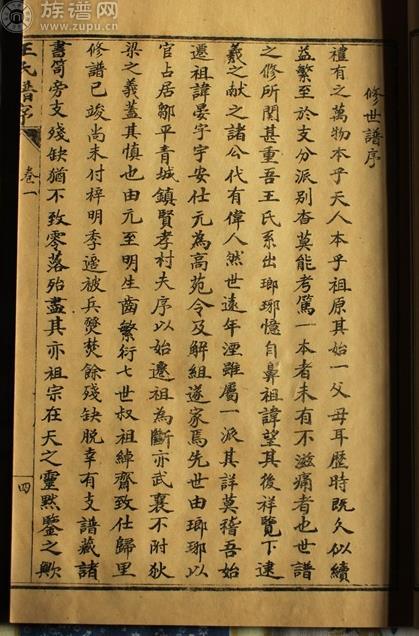 族谱网
zupu.cn
修世譜序
禮有之萬物本乎天人本乎祖原其始一父母耳歷時既久似續
益繁至於支分派別杳莫能考篤一本者未有不滋痛者也世譜
之修所關甚重吾王氏系出瑯琊憶自鼻祖諱望其後祥覽下逮
羲之献之諸公代有偉人然世遠年湮雖屬一派其詳莫稽吾始
遷祖諱晏字宇安仕元為高苑令及解組遂家焉先世由瑯琊以
官占居鄒平青城鎮賢孝村夫序以始遷祖為斷亦武襄不附狄
梁之義蓋其慎也由元至明生齒繁衍七世叔祖綽齋致仕歸里
修譜已竣尚未付梓明季遞被兵燹焚餘殘缺脱幸有支譜藏諸
書笥旁支殘缺猶不致零落殆盡其亦祖宗在天之靈默鑒之歟
王氏譜序
卷一
四